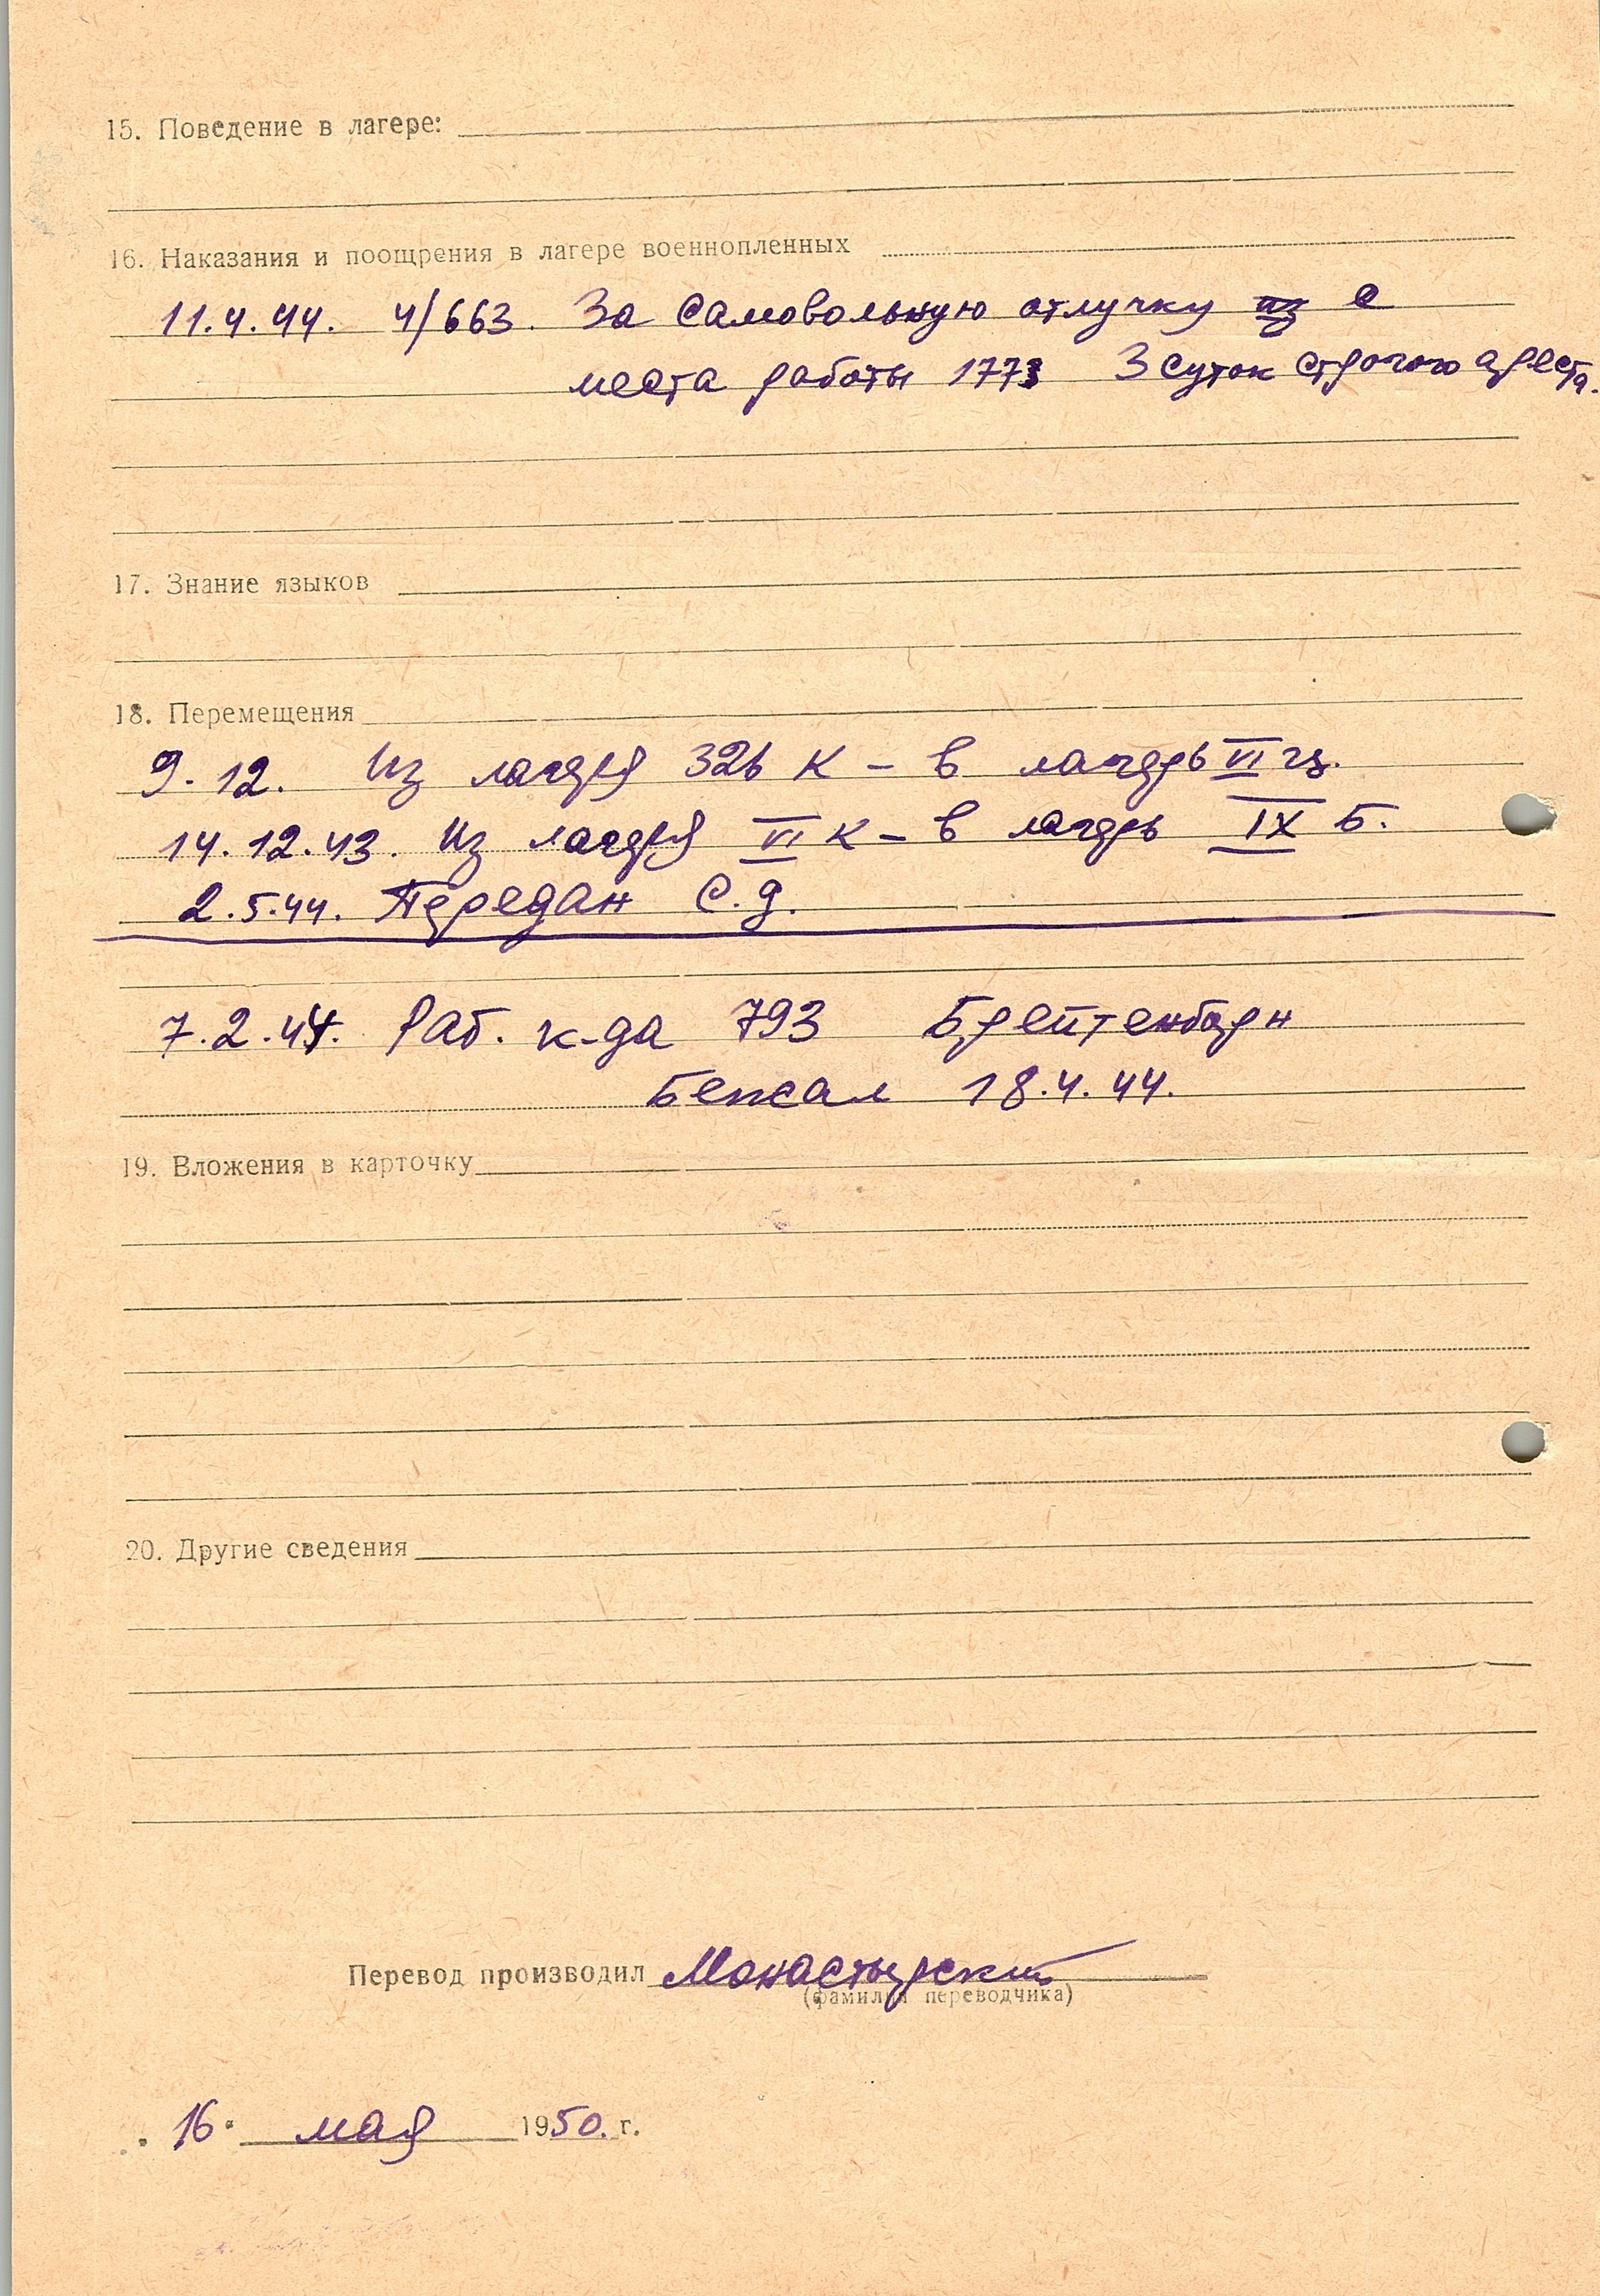 15. Поведение в лагере:
16. Наказания и поощрения в лагере военнопленных
11.4.44. 4/663. За самовольную отлучку из с
места работы 1773 3 суток строгого ареста.
17. Знание языков
18. Перемещения
9.12. Из лагеря 326 К – в лагерь VI
14.12.43. Из лагеря VI К – в лагерь IX Б.
2.5.44. Передан С.Д.
7.2.44. Раб. к-да 793 Брейтенборн
Бежал 18.4.44.
19. Вложения в карточку
20. Другие сведения
Перевод производил Монастырский
(фамилия переводчика)
16 мая 1950. г.